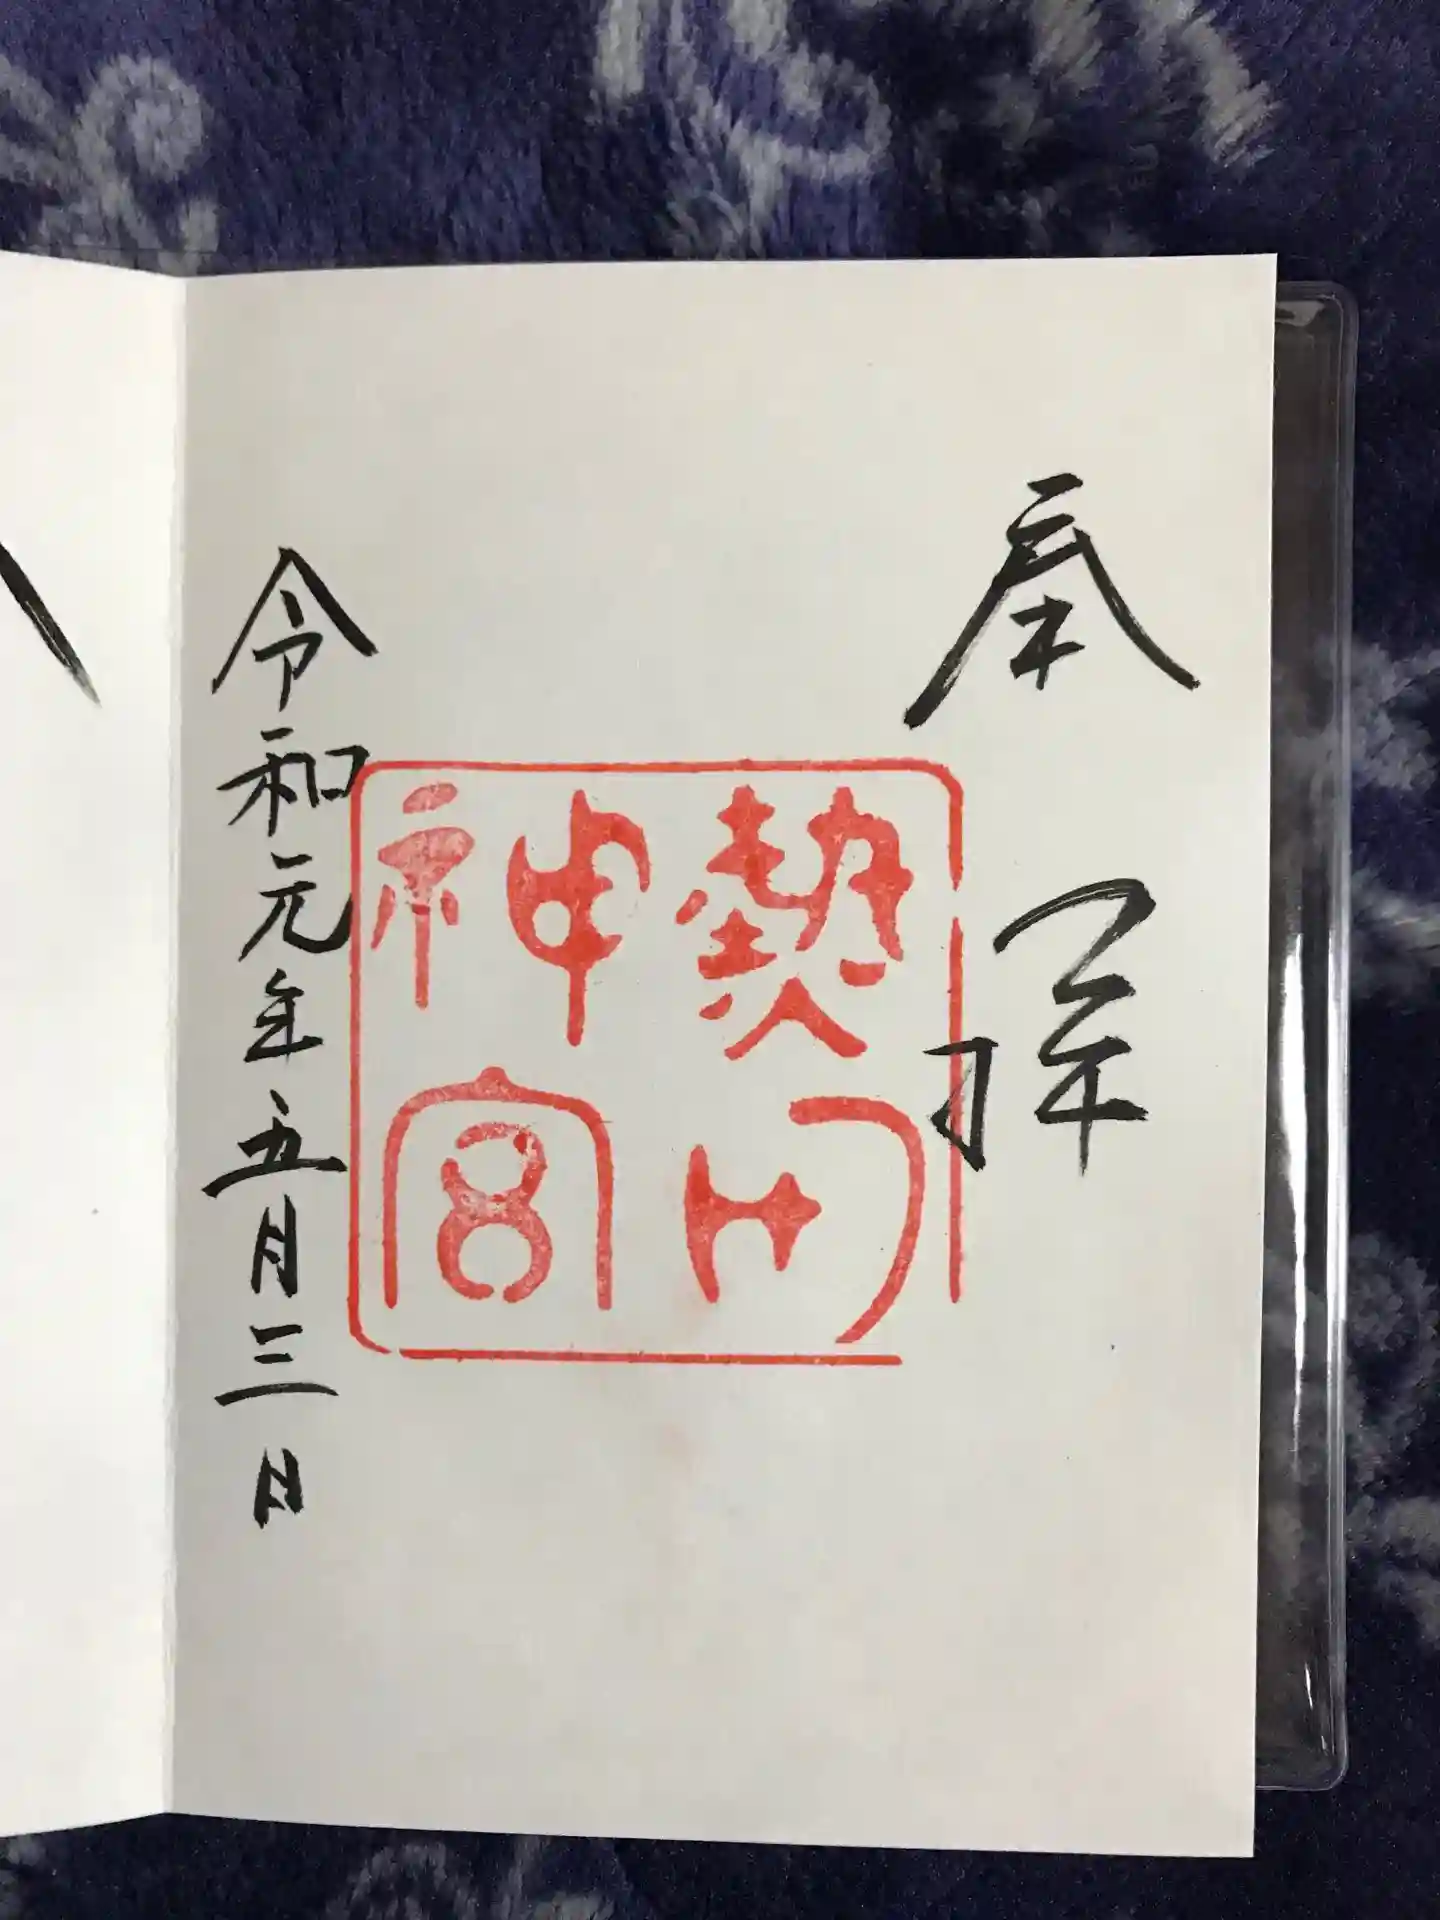 奉拝
熱田
神宮
令和元年五月三日